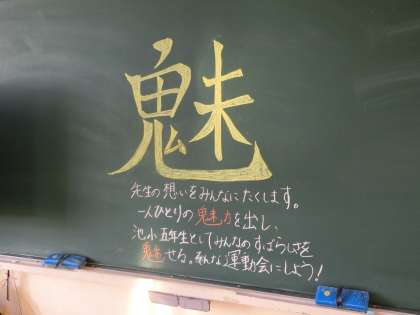 魅
先生の想いをみんなにたくします。
一人ひとりの魅力を出し、
池小五年生としてみんなのすばらしさを
魅せる。そんな運動会にしよう！